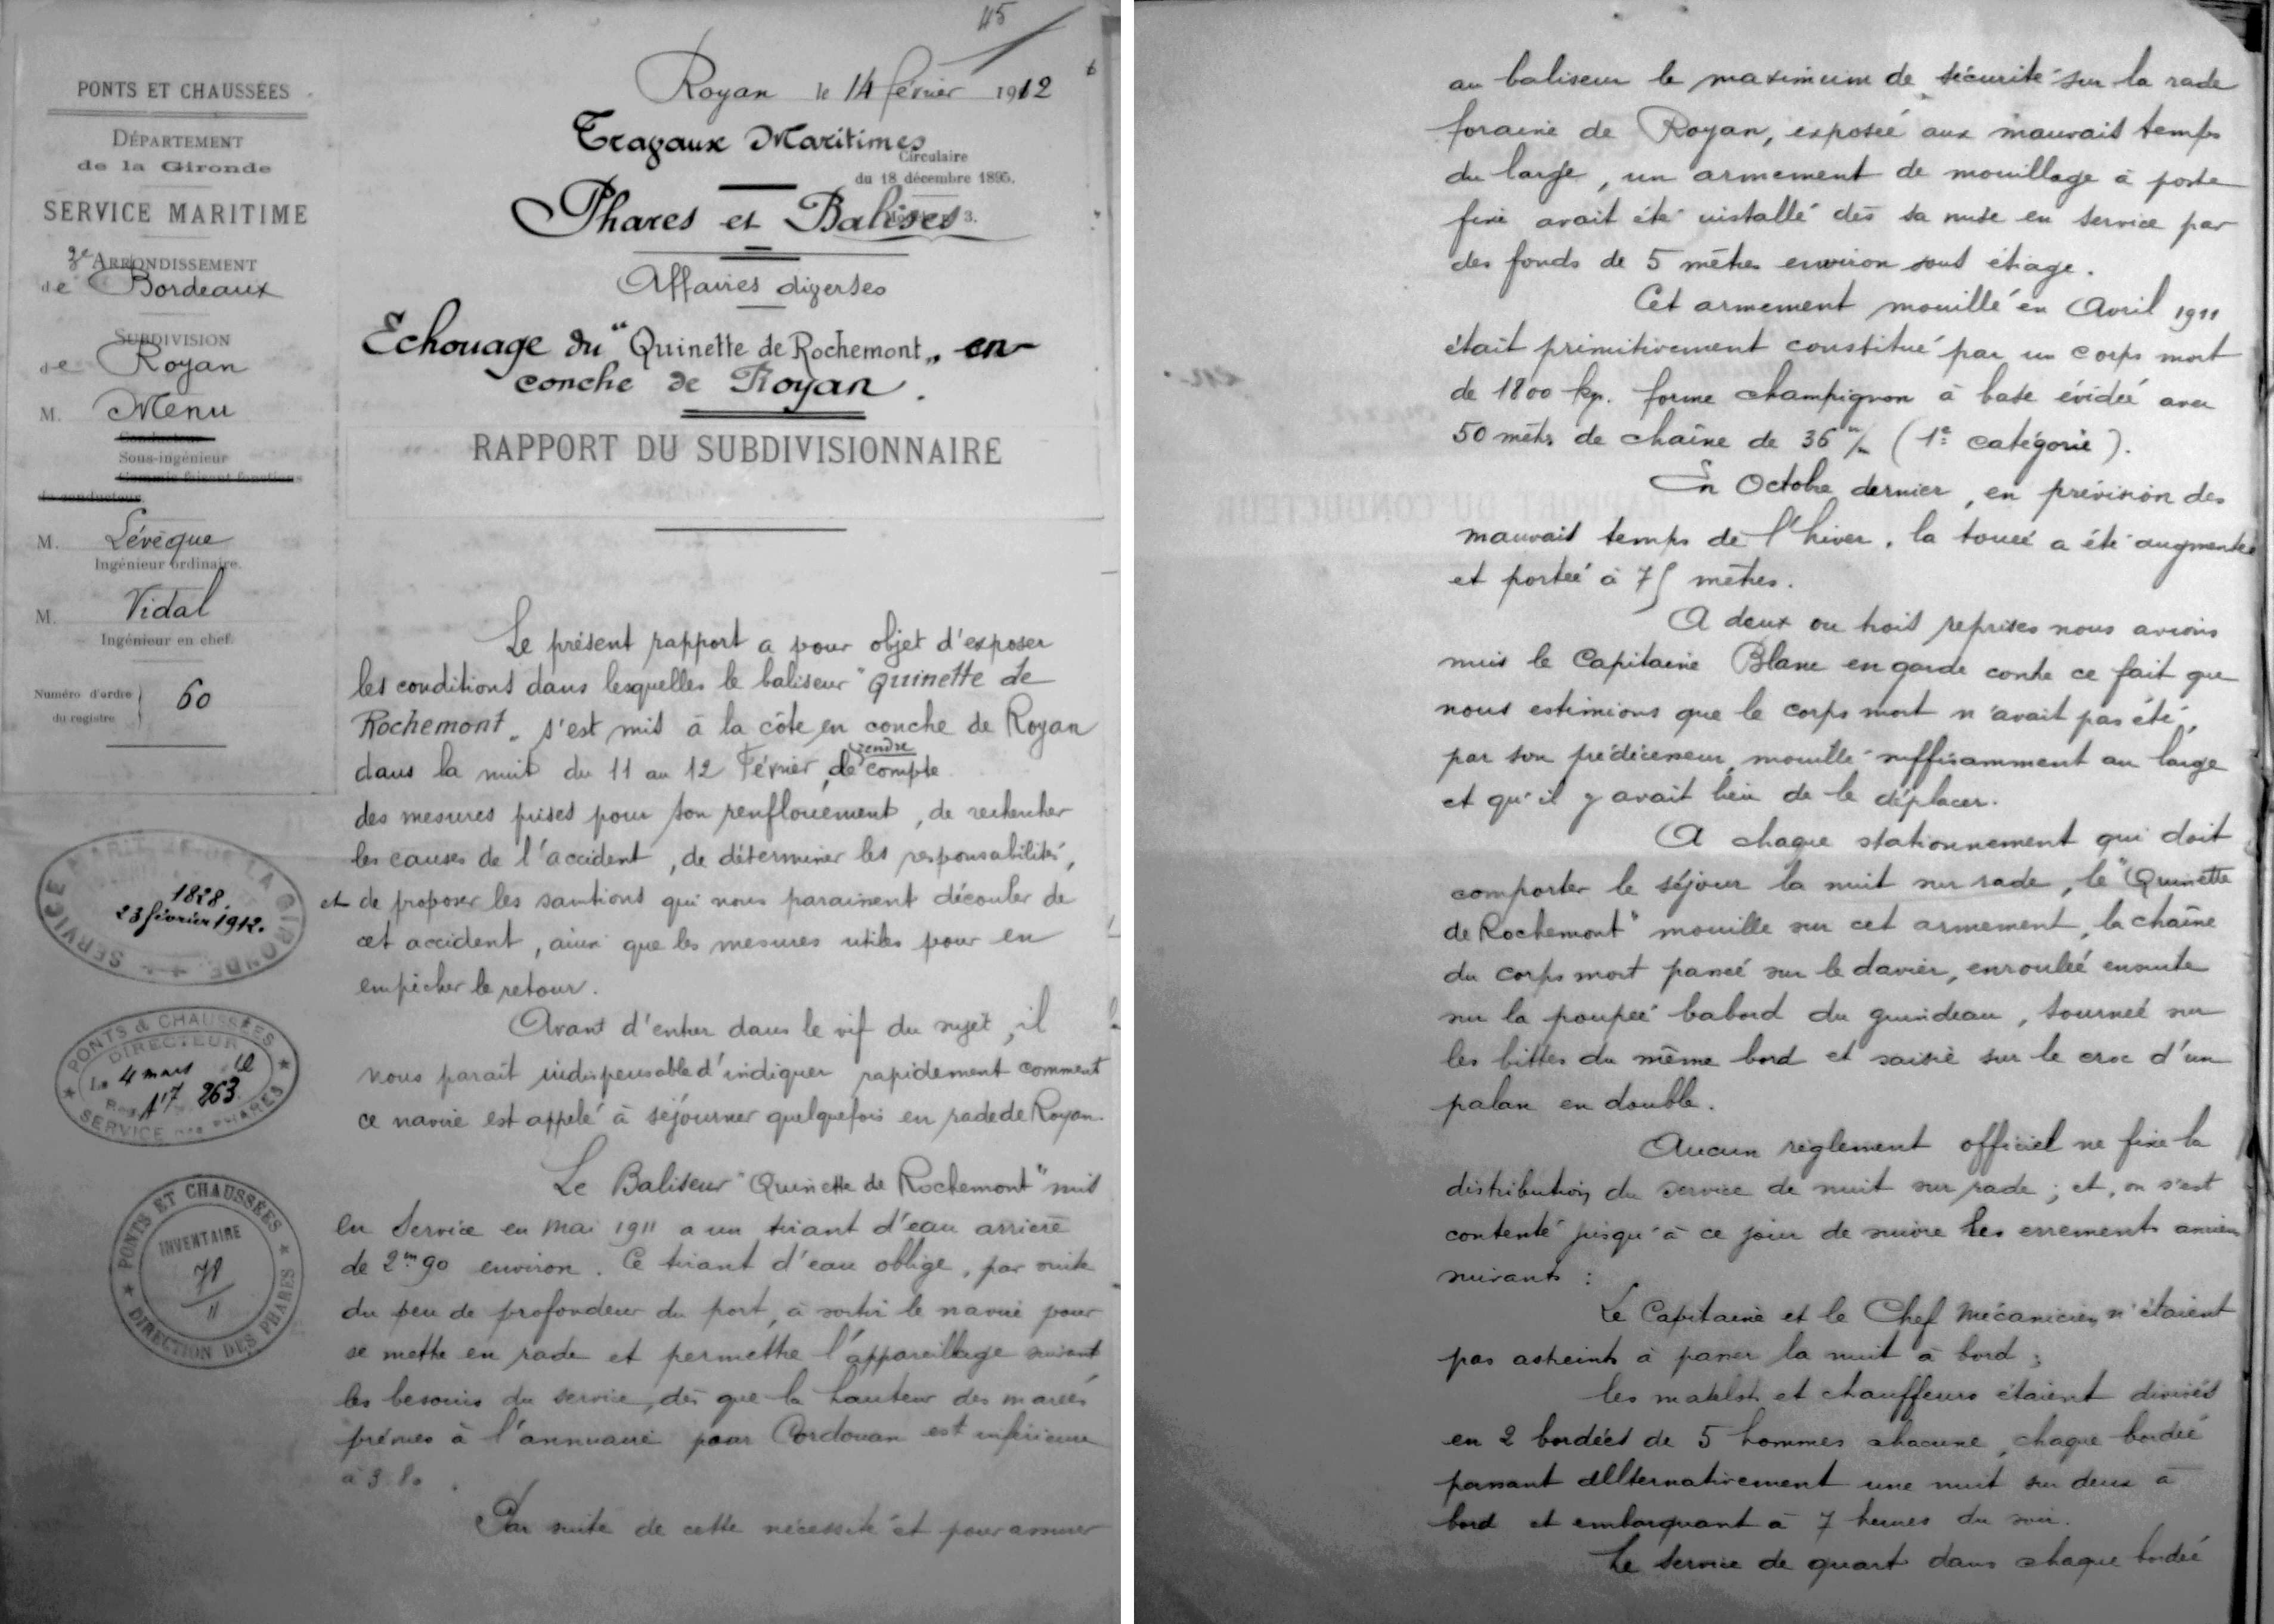 45
PONTS ET CHAUSSÉES
DÉPARTEMENT
de la Gironde
SERVICE MARITIME
3e ARRONDISSEMENT
de Bordeaux
SUBDIVISION
de Royan
M. Menu
Conducteur
Sous-ingénieur
Commis faisant fonctions
de conducteur.
M. Lévêque
Ingénieur ordinaire.
M. Vidal
Ingénieur en chef.
Numéro d'ordre
du registre
60
SERVICE MARITIME DE LA GIRONDE
1828.
23 février 1912.
PONTS & CHAUSSÉES
DIRECTEUR
Le 4 mars 12
Reg. A17 263
SERVICE DES PHARES
PONTS ET CHAUSSÉES
INVENTAIRE
78
11
DIRECTION DES PHARES
Royan le 14 février 1912
Travaux Maritimes
Circulaire
du 18 décembre 1895.
Phares et Balises
3.
Affaires diverses
Echouage du "Quinette de Rochemont" en
conche de Royan.
RAPPORT DU SUBDIVISIONNAIRE
Le présent rapport a pour objet d'exposer
les conditions dans lesquelles le baliseur "Quinette de
Rochemont" s'est mis à la côte en conche de Royan
dans la nuit du 11 au 12 Février, de rendre compte
des mesures prises pour son renflouement, de rechercher
les causes de l'accident, de déterminer les responsabilités,
et de proposer les sanctions qui nous paraissent découler de
cet accident, ainsi que les mesures utiles pour en
empêcher le retour.
Avant d'entrer dans le vif du sujet, il
nous parait indispensable d'indiquer rapidement comment
ce navire est appelé à séjourner quelquefois en rade de Royan.
Le Baliseur "Quinette de Rochemont" mis
en Service en Mai 1911 a un tirant d'eau arrière
de 2m90 environ. Ce tirant d'eau oblige, par suite
du peu de profondeur du port, à sortir le navire pour
se mettre en rade et permettre l'appareillage suivant
les besoins du service, dès que la hauteur des marées
prévues à l'annuaire pour Cordouan est inférieure
à 3.80.
Par suite de cette nécessité et pour assurer
au baliseur le maximum de sécurité sur la rade
foraine de Royan, exposée aux mauvais temps
du large, un armement de mouillage à poste
fixe avait été installé dès sa mise en service par
des fonds de 5 mètres environ sous étiage.
Cet armement mouillé en Avril 1911
était primitivement constitué par un corps mort
de 1800 kg. forme champignon à base évidée avec
50 mètres de chaîne de 36 m/m (1e catégorie).
En Octobre dernier, en prévision des
mauvais temps de l'hiver, la touée a été augmentée
et portée à 75 mètres.
A deux ou trois reprises nous avions
mis le Capitaine Blanc en garde contre ce fait que
nous estimions que le corps mort n'avait pas été,
par son prédécesseur, mouillé suffisamment au large
et qu'il y avait lieu de le déplacer.
A chaque stationnement qui doit
comporter le séjour la nuit sur rade, le "Quinette
de Rochemont" mouille sur cet armement, la chaîne
du corps mort passée sur le davier, enroulée ensuite
sur la poupée babord du guindeau, tournée sur
les bittes du même bord et saisie sur le croc d'un
palan en double.
Aucun règlement officiel ne fixe la
distribution du service de nuit sur rade ; et, on s'est
contenté jusqu'à ce jour de suivre les errements anciens
suivants :
Le Capitaine et le Chef Mécanicien n'étaient
pas astreints à passer la nuit à bord ;
les matelots et chauffeurs étaient divisés
en 2 bordées de 5 hommes chacune, chaque bordée
passant alternativement une nuit sur deux à
bord et embarquant à 7 heures du soir.
Le Service de quart dans chaque bordée